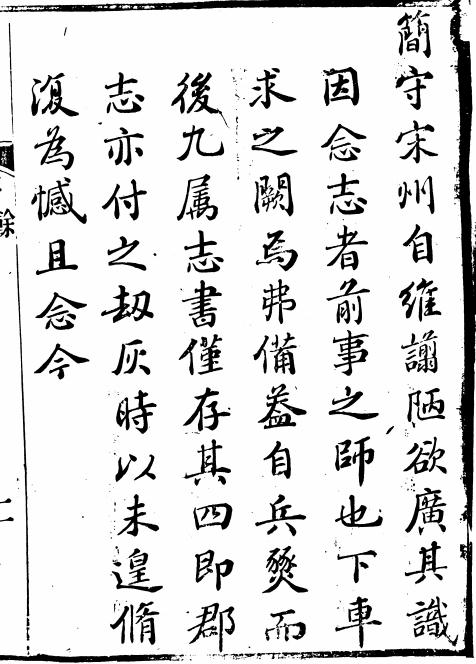 簡守宋州自維謭陋欲廣其識
因念志者前事之師也下車
求之闕焉弗備葢自兵燹而
後九属志書僅存其四即郡
志亦付之刼灰時以未遑脩
復為憾且念今